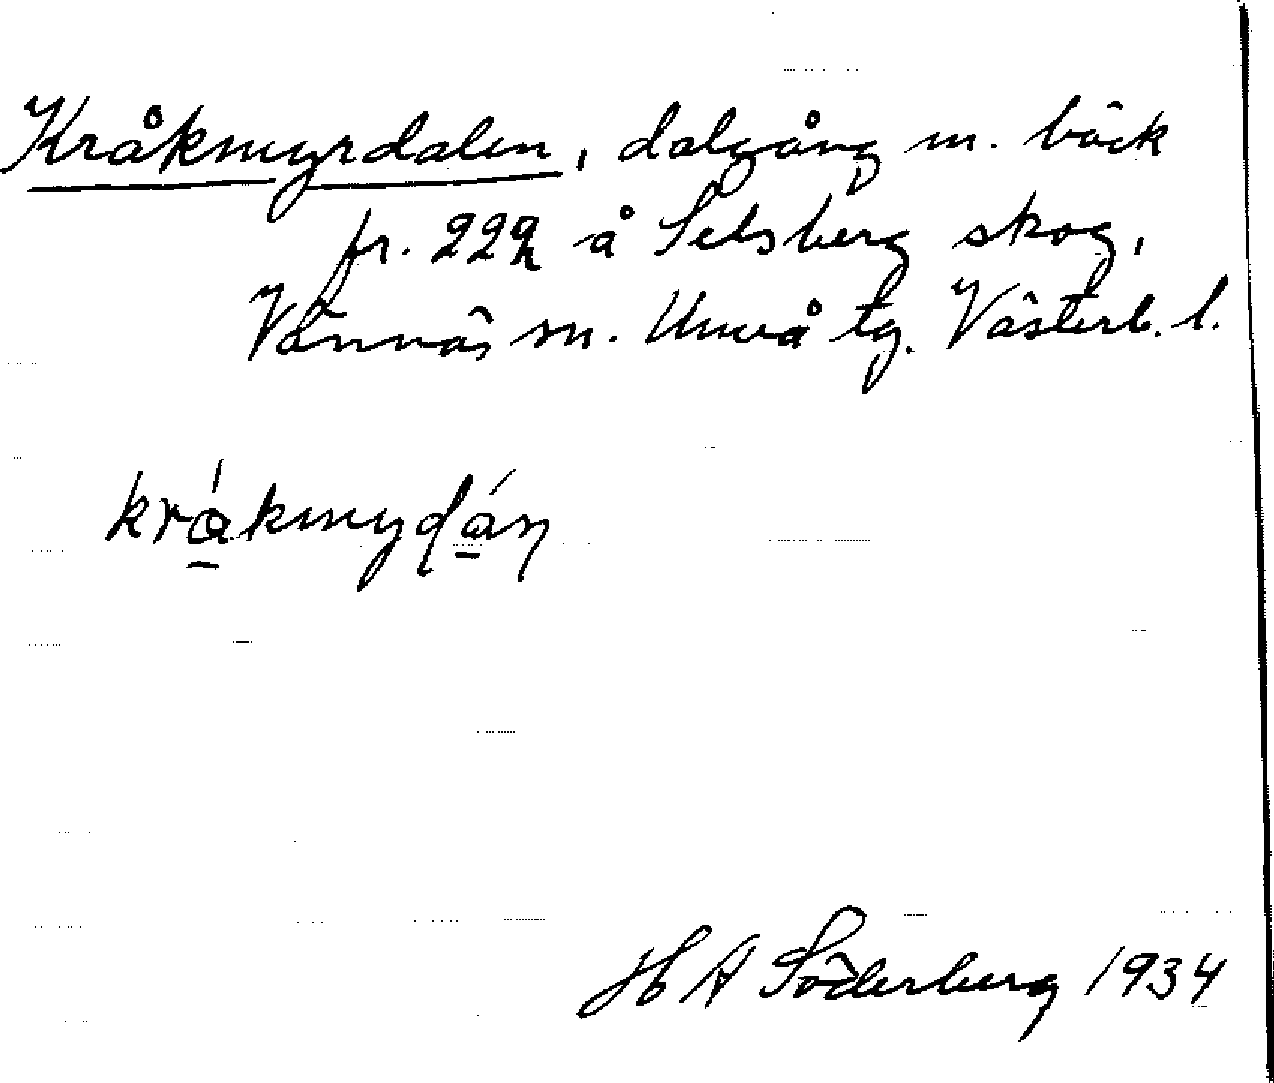 Kråkmyrdalen, dalgång m. bäck
fr. 229 å Selsberg skog,
Vännäs sn. Umeå tg. Västerb. l.
kråkmydán
H A Söderberg 1934